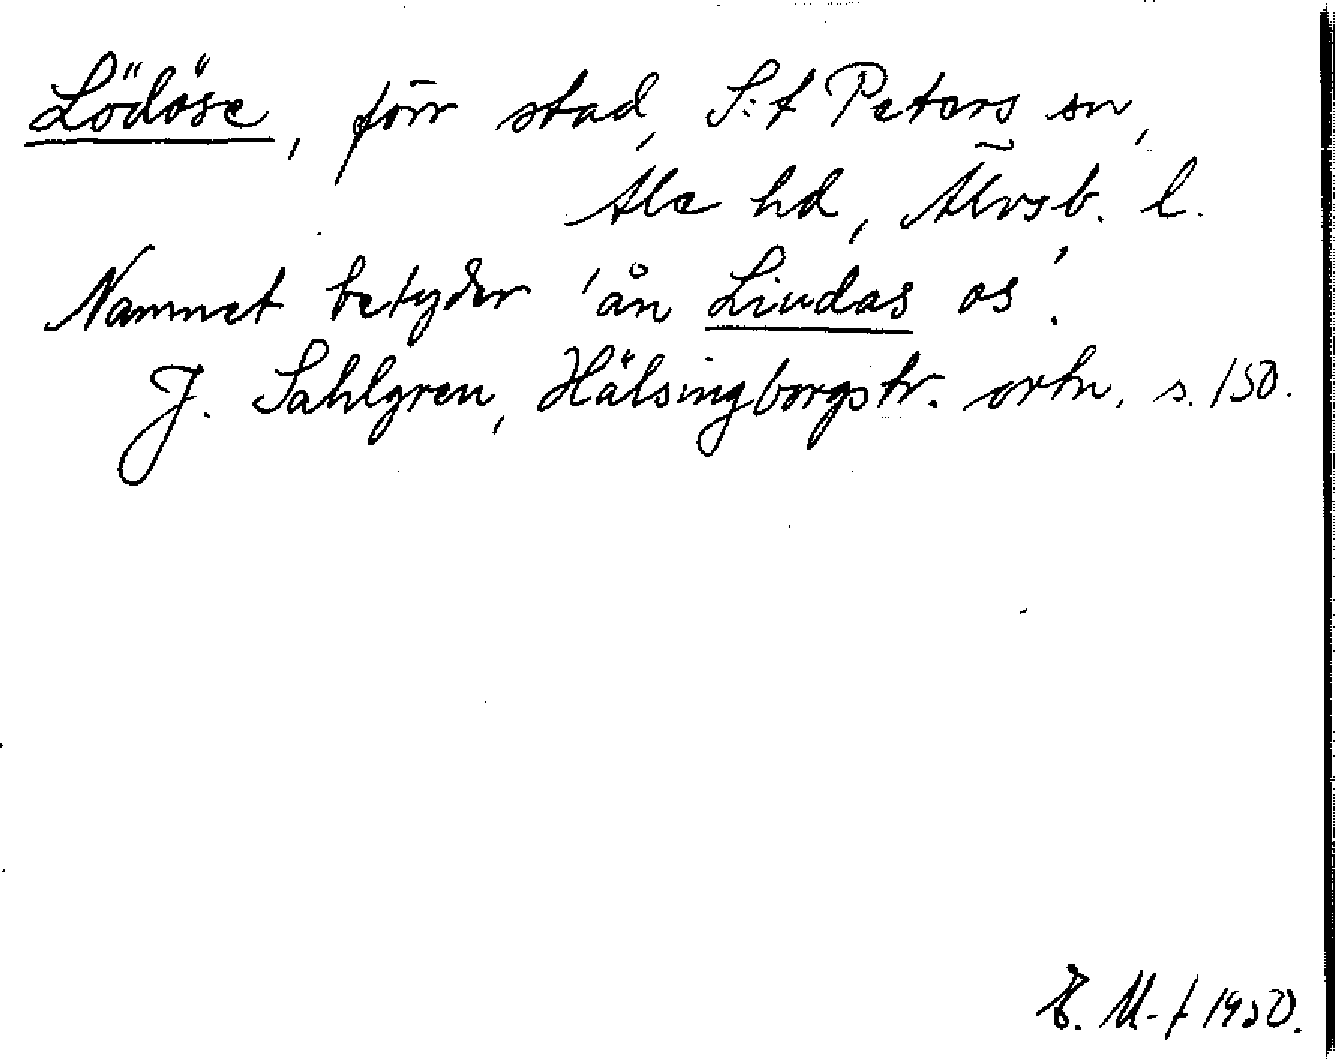 Lödöse, förr stad, S:t Peters sn,
Ale hd, Älvsb. l.
Namnet betyder 'ån Liudas os'.
J. Sahlgren, Hälsingborgstr. ortn. s. 150.
E. M-f 1950.